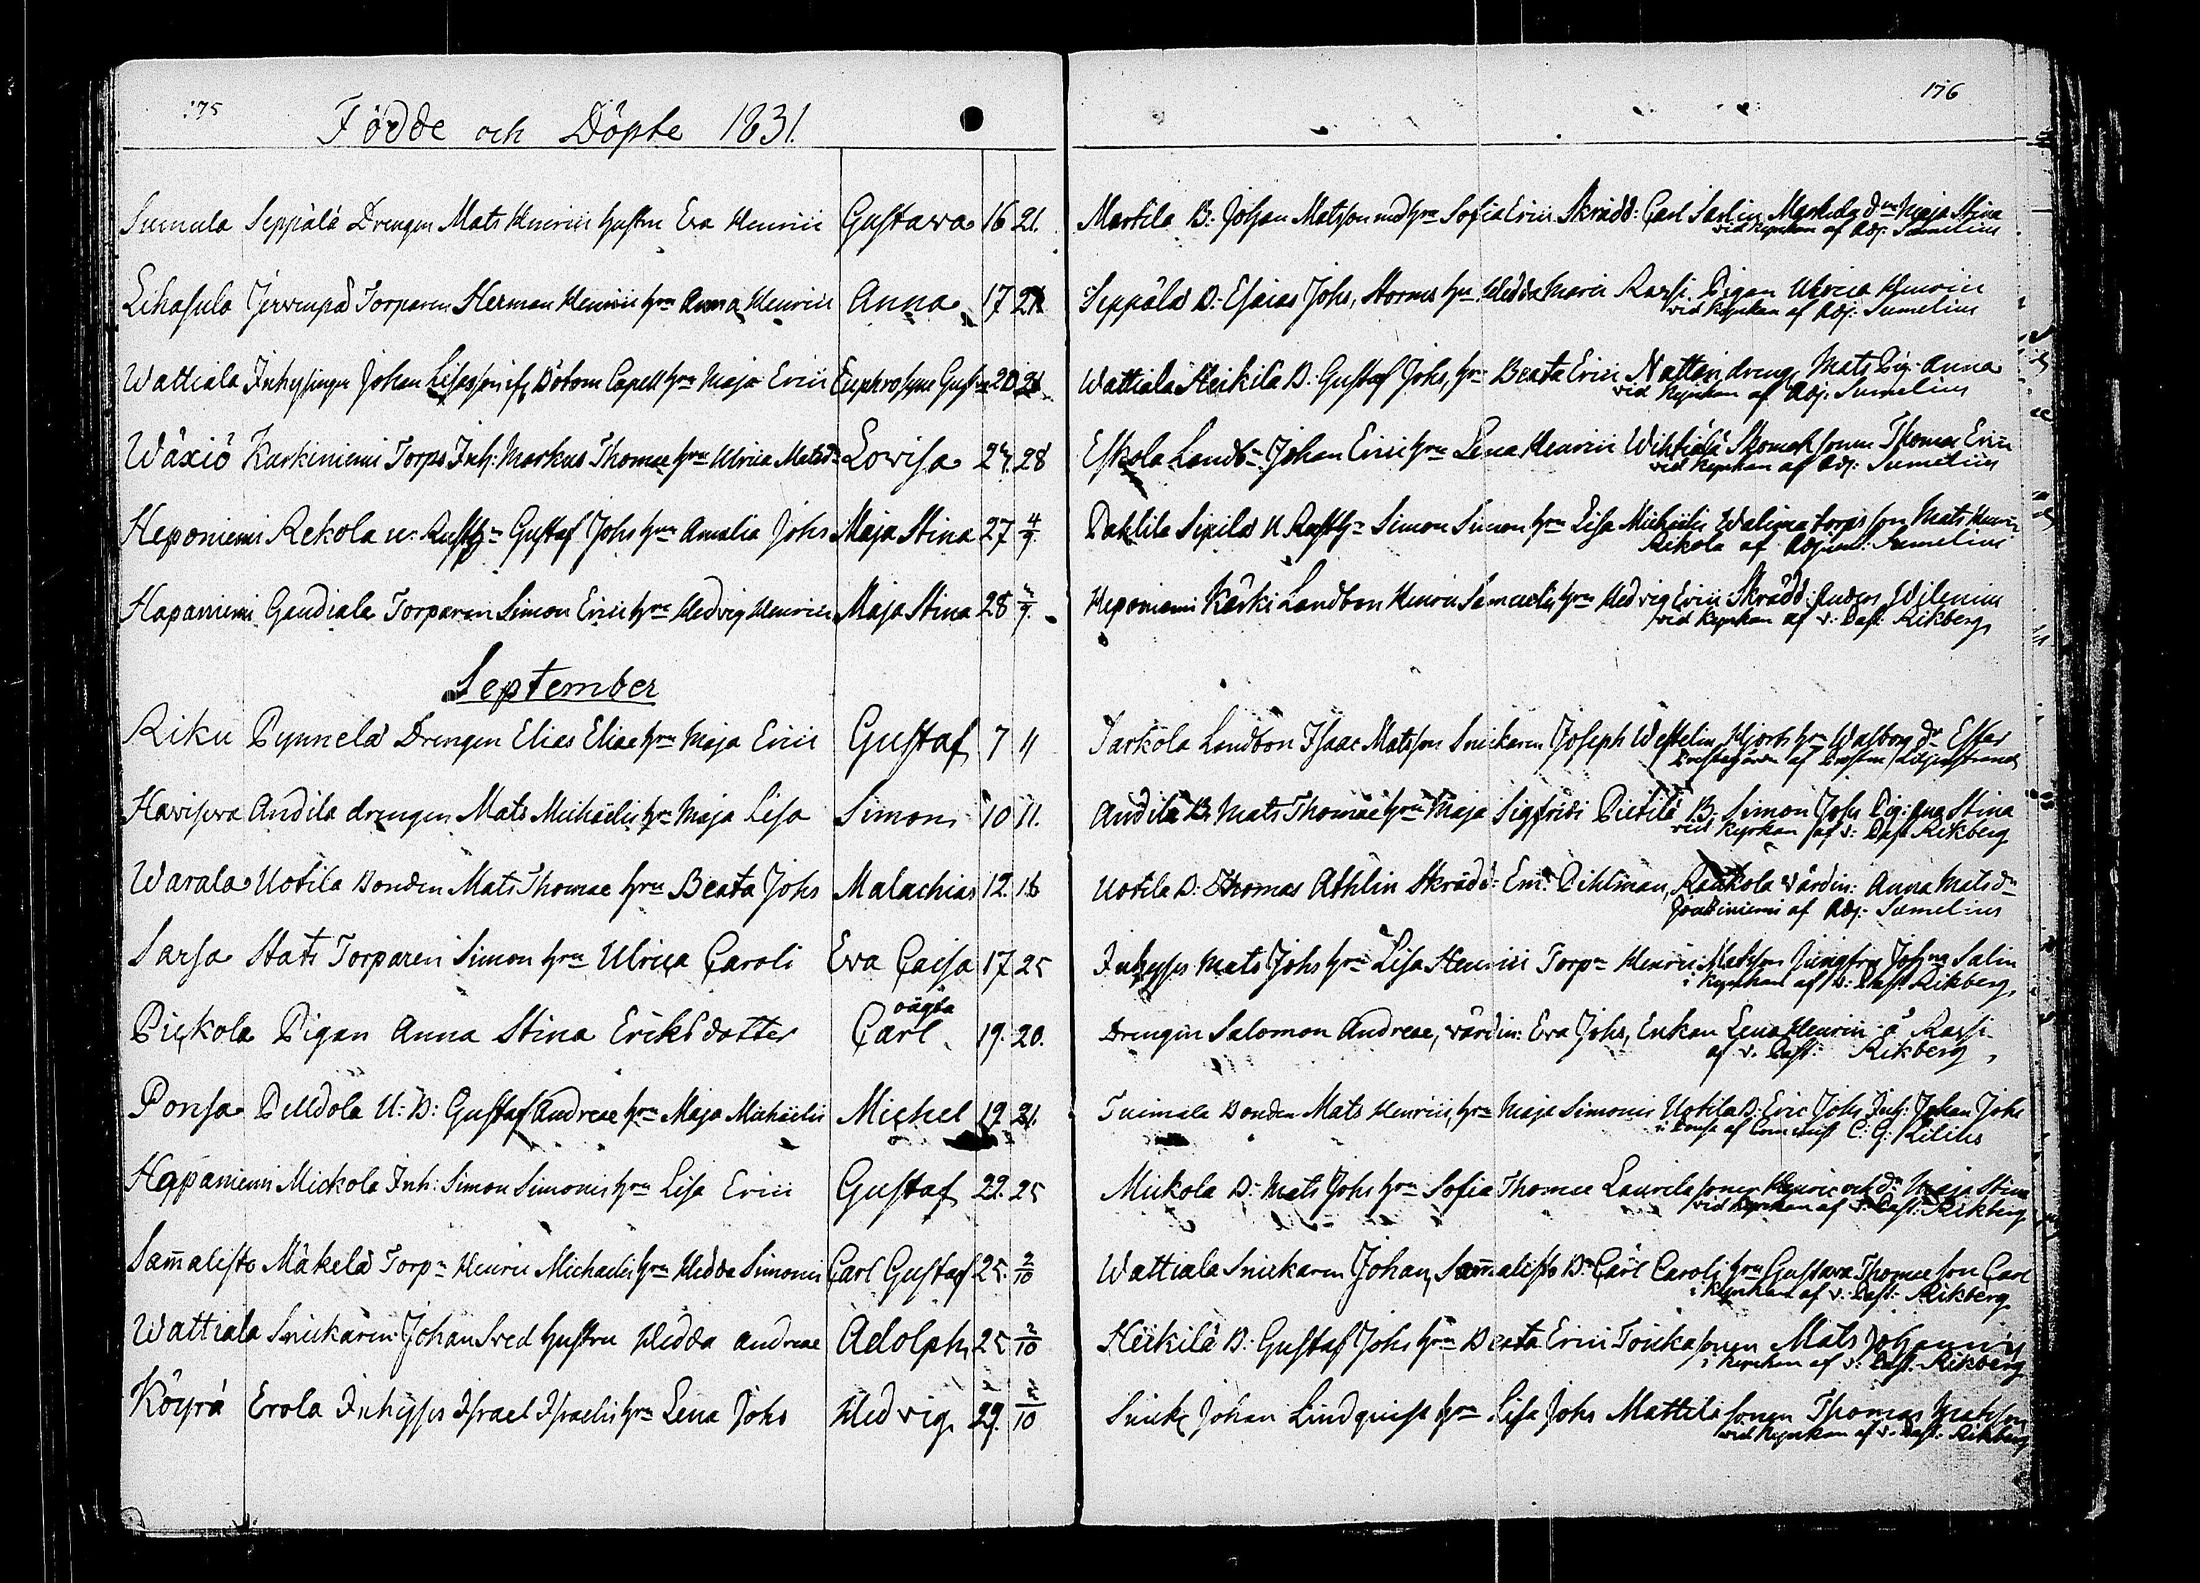 175
Födde och Döpte 1831.
Sumula Seppälä Drengen Mats Henrici hustru Eva Henrici Gustava 16 21.
Lihasula Jervenpä Torparen Herman Henrici hru Anna Henrici Anna 17 21
Wattiala Inhysingen Johan Lisasson Capell hru Maja Erici Euphrosyne 20 21
Wäxiö Karkiniemi Torps Inh: Markus Thomae hru Ulrica Matsdr Lovisa 27. 28
Heponiemi Rekola u: Rusth Gustaf Johs hru Amalia Johs Maja Stina 27 4/9
Hapaniemi Gaudiala Torparen Simon Erici hru Hedvig Henrici Maja Stina 28 4/9.
September
Riku Pynnelä Drengen Elias Eliae hru Maja Erici Gustaf 7 11
Haviseva Andila drengen Mats Michaelis hr Maja Lisa Simon 10 11.
Warala Uotila Bonden Mats Thomae hru Beata Johs Malachias 12. 18
Sarsa Stats Torparen Simon hru Ulrica Caroli Eva Caisa 17 25
oägta
Pickola Pigan Anna Stina Eriksdotter Carl 19. 20.
Ponsa Pelldola U: B: Gustaf Andreae hru Maja Michaelis Michel 19. 21.
Hapaniemi Mickola Inh: Simon Simonis hru Lisa Erici Gustaf 22. 25
Sam̄alisto Mäkelä Torpn Henric Michaelis hru Hedda Simonis Carl Gustaf 25. 2/10
Wattiala Snickaren Johan Sved hustru Hedda Andreae Adolph 25 2/10
Köyrä Erola Inhyses Israel Israelis hru Lena Johs Hedvig 29. 2/10
176
Martila B: Johan Matsson med hru Sofia Erici Skrädd: Carl Sarlin Markula dr Maja Stina
vid kyrkan af Adj: Sumelius
Seppälä B: Esaias Johs, Storms hru Hedda Maria Rassi Pigan Ulrica Henrici
vid kyrkan af Adj: Sumelius
Wattiala Heikilä B: Gustaf Johs, hru Beata Erici Nattari dreng Mats Pig: Anna
vid kyrkan af Adj: Sumelius
Eskola Landbn Johan Erici hru Lena Henrici Wihtiälä Skomak sonen Thomas Erici
vid kyrkan af Adj: Sumelius
Paltila Sipilä U Rusth Simon Simon hru Lisa Michaelis torps son Mats Henrici
Rikola af Adjunct: Sumelius
Heponiemi Kärki Landbon Henric Samuelis hru Hedvig Erici Skrädd: Anders Wilenius
vid kyrkan af v: Past: Rikberg
Jarkola Landbon Isaac Matsson Snickaren Joseph Westelin Hjorts hru Walborg dr Ester
Prestegården af Prosten Liljenstrand
Andila B: Mats Thomae hru Maja Sigfridi Pietilä B: Simon Johs Pig: Ana Stina
vid kyrkan af v: Past Rikberg
Uotila B: Thomas Athlin Skrädd: Em: Pihlman, Raukola värdin: Anna Matsdr
af Adj: Sumelius
Inhyses Mats Johs hru Lisa Henrici Torpn Henric Matsson Jungfru Johna Salin
i kyrkan af v: Past. Rikberg,
Drengen Salomon Andreae, värdin: Eva Johs, Enkan Lena Henrici å Rassi
af v. Past: Rikberg,
Tuimala Bonden Mats Henrici, hru Maja Simonis Uotila B: Eric Johs Inh: Johan Johs
i Ponsa af C: G: Kilius
Mickola B: Mats Johs hru Sofia Thomae Laurila sonen Henric och dr Maja Stina
vid kyrkan af v: Past: Rikberg
Wattiala Snickaren Johan, Sam̄alisto B: Carl Caroli hru Gustava Thomae son Carl
i kyrkan af v: Past: Rikberg
Heikilä B: Gustaf Johs hru Beata Erici Toukasonen Mats Johannis
i kyrkan af v: Past: Rikberg
Snick Johan Lindquist hru Lisa Johs Mattila sonen Thomas Matsson
vid kyrkan af v: Past: Rikberg